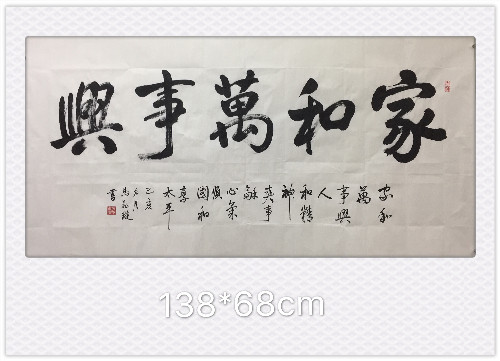 家和萬事興
家和
萬
事興
人
和精
神
爽事
龢
心氣
順
國和
享
太平
己亥
書
138*68cm